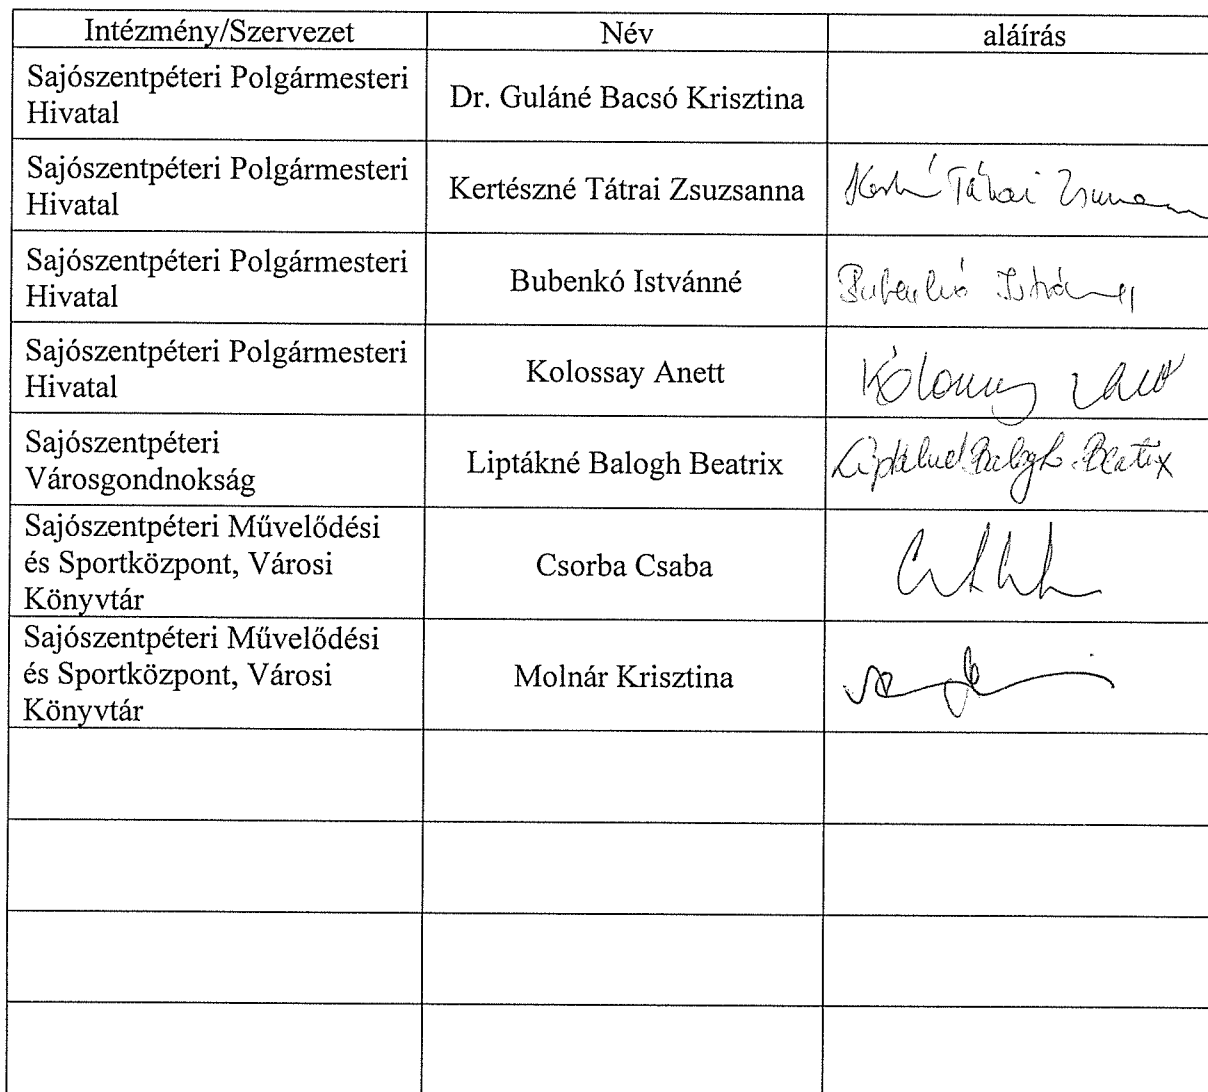 Intézmény/Szervezet Név aláírás
Sajószentpéteri Polgármesteri
Hivatal
Dr. Guláné Bacsó Krisztina
Sajószentpéteri Polgármesteri
Hivatal
Kertészné Tátrai Zsuzsanna
Tátrai
Sajószentpéteri Polgármesteri
Hivatal
Bubenkó Istvánné
Bubenkó
Sajószentpéteri Polgármesteri
Hivatal
Kolossay Anett
Sajószentpéteri
Városgondnokság
Liptákné Balogh Beatrix
Liptákné Balogh Beatrix
Sajószentpéteri Művelődési
és Sportközpont, Városi
Könyvtár
Csorba Csaba
Sajószentpéteri Művelődési
és Sportközpont, Városi
Könyvtár
Molnár Krisztina